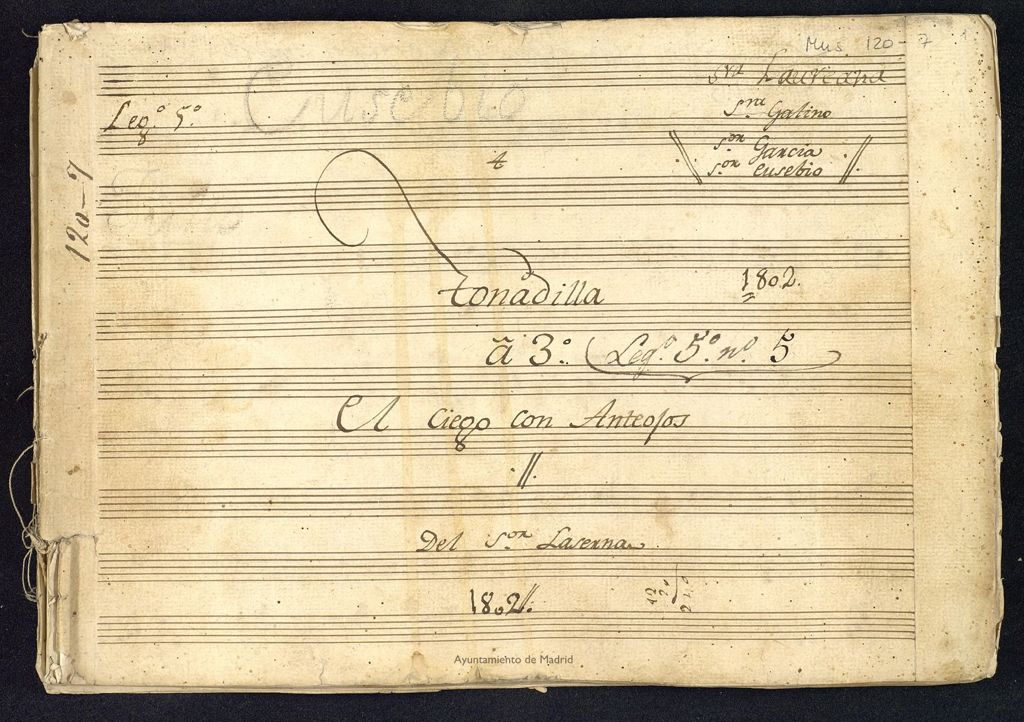 Mus 120-7 1
Eusebio
Sra Laureana
Legº 5º
Sra Galino
4
Sor Garcia
Sor Eusebio
120-7
tonadilla
1802.
â 3º (Legº 5º nº 5
El Ciego con Anteojos
Del Sor Laserna
1802.
Ayuntamiento de Madrid